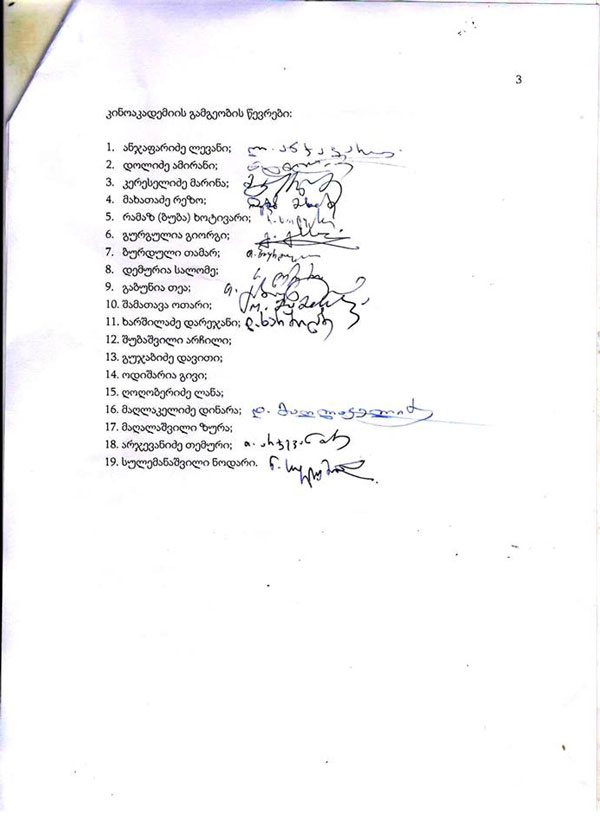 3
კინოაკადემიის გამგეობის წევრები:
1. ანჯაფარიძე ლევანი; ლ. ანჯაფარიძე
2. დოლიძე ამირანი;
3. კერესელიძე მარინა;
4. მახათაძე რეზო;
5. რამაზ (ბუბა) ხოტივარი;
6. გურგულია გიორგი;
7. ბურდული თამარ;
8. დემურია სალომე;
9. გაბუნია თეა;
10. შამათავა ოთარი;
11. ხარშილაძე დარეჯანი; დ. ხარშილაძე
12. შუბაშვილი არჩილი;
13. გუჯაბიძე დავითი;
14. ოდიშარია გივი;
15. ღოღობერიძე ლანა;
16. მაღლაკელიძე დინარა; დ. მაღლაკელიძე
17. მაღალაშვილი ზურა;
18. არჯევანიძე თემური; თ. არჯევანიძე
19. სულემანაშვილი ნოდარი.